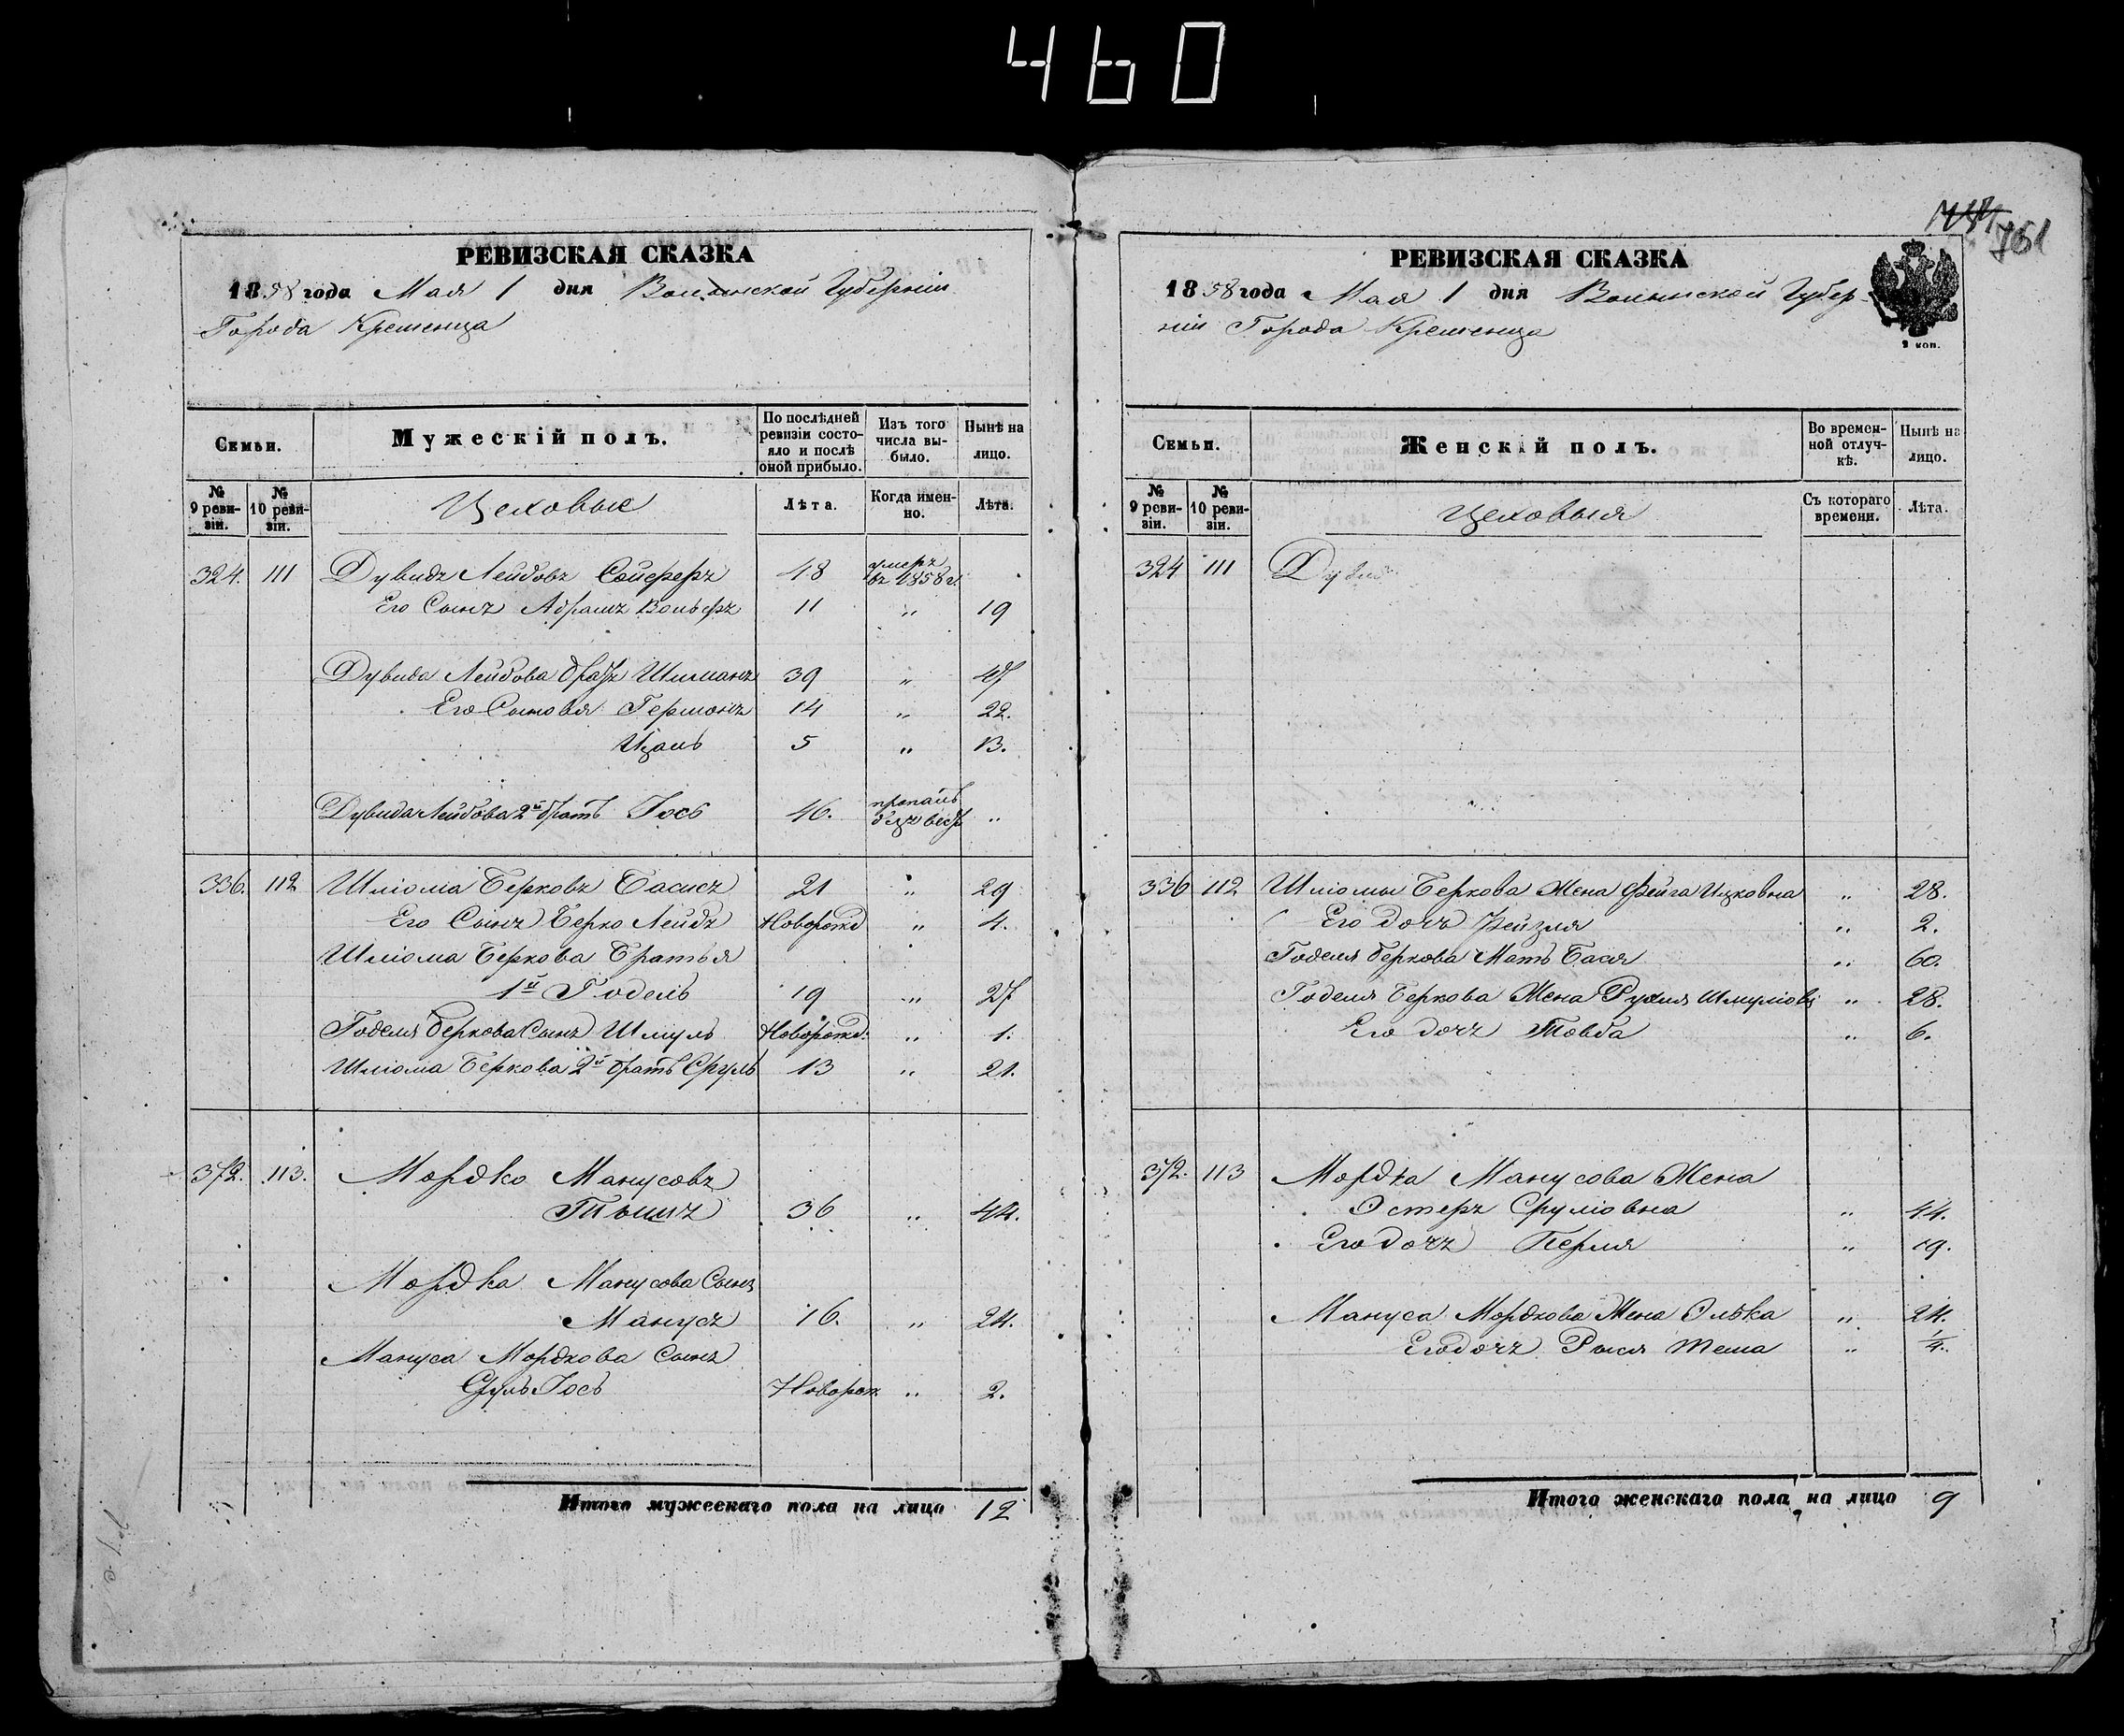 460
РЕВИЗСКАЯ СКАЗКА
1858 года Мая 1 дня Волынской Губерніи
Города Кременца
Семьи.
Мужескій полъ.
По послѣдней ревизіи состояло и послѣ оной прибыло.
Изъ того числа выбыло.
Нынѣ на лицо.
№ 9 ревизіи.
№ 10 ревизіи.
Цеховые
Лѣта.
Когда именно.
Лѣта.
324. 111 Дувидъ Лейбовъ Сойферъ 48 умеръ въ 1858 г.
Его Сынъ Абрамъ Вольфъ 11 " 19
Дувида Лейбова братъ Шиманъ 39 " 47
Его Сыновья Гершонъ 14 " 22.
Ицаль 5 " 13.
Дувида Лейбова 2й братъ Іось 46. пропалъ безъ вест "
336. 112 Шліома Берковъ Басисъ 21 " 29
Его Сынъ Берко Лейбъ Новорожд " 4.
Шліома Беркова Братья
1й Годель 19 " 27
Годеля Беркова Сынъ Шмуль Новорожд: " 1.
Шліома Беркова 2й братъ Сруль 13 " 21.
372. 113. Мордко Манусовъ
36 " 44.
Мордка Манусова Сынъ
Манусъ 16. " 24.
Мануса Мордкова Сынъ
Сруль Іось Новорож " 2.
Итого мужескаго пола на лицо 12
761
РЕВИЗСКАЯ СКАЗКА
1858 года Мая 1 дня Волынской Губер-
ніи Города Кременца
2 коп.
Семьи.
Женскій полъ.
Во временной отлучкѣ.
Нынѣ на лицо.
№ 9 ревизіи.
№ 10 ревизіи.
Цеховыя
Съ котораго времени.
Лѣта.
324 111 Дувид
336 112 Шліомы Беркова Жена Фейга Ицковна " 28.
Его дочь Рейзля " 2.
Годеля Беркова Мать Бася " 60.
Годеля Беркова Жена Рухля Шмуліов " 28.
Его дочъ Товба " 6.
372. 113 Мордка Манусова Жена
Эстеръ Сруліовна " 44.
Его дочъ Перля " 19.
Мануса Мордкова Жена Элька " 24.
Его дочъ Рыся Теша " 1/4.
Итого женскаго пола на лицо 9